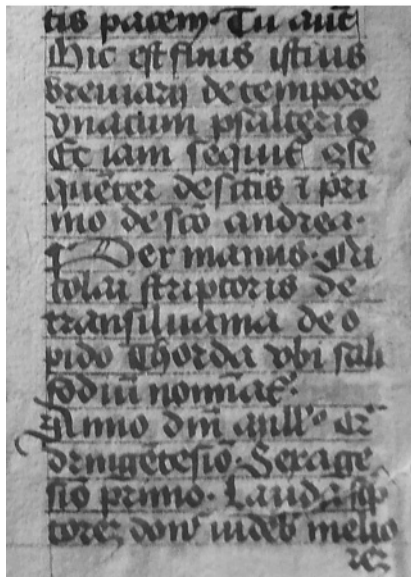 tis pacem. Tu aut̄
Hic est finis istius
breuiarij de tempore
vnacum psalterio
Et iam sequit᷑ ꝯse
quēter de sctīs ⁊ pri
mo de sc̄o andrea.
¶ Per manus. Ni
colai scriptoris de
transiluania de o
pido Thorda vbi sali
fodiū nomīat᷑.
Anno dn̄i Mill̄o
dringētesio. Sexage
sīo primo. Lauda sc̄p
torez donec videb̄ melio
rez